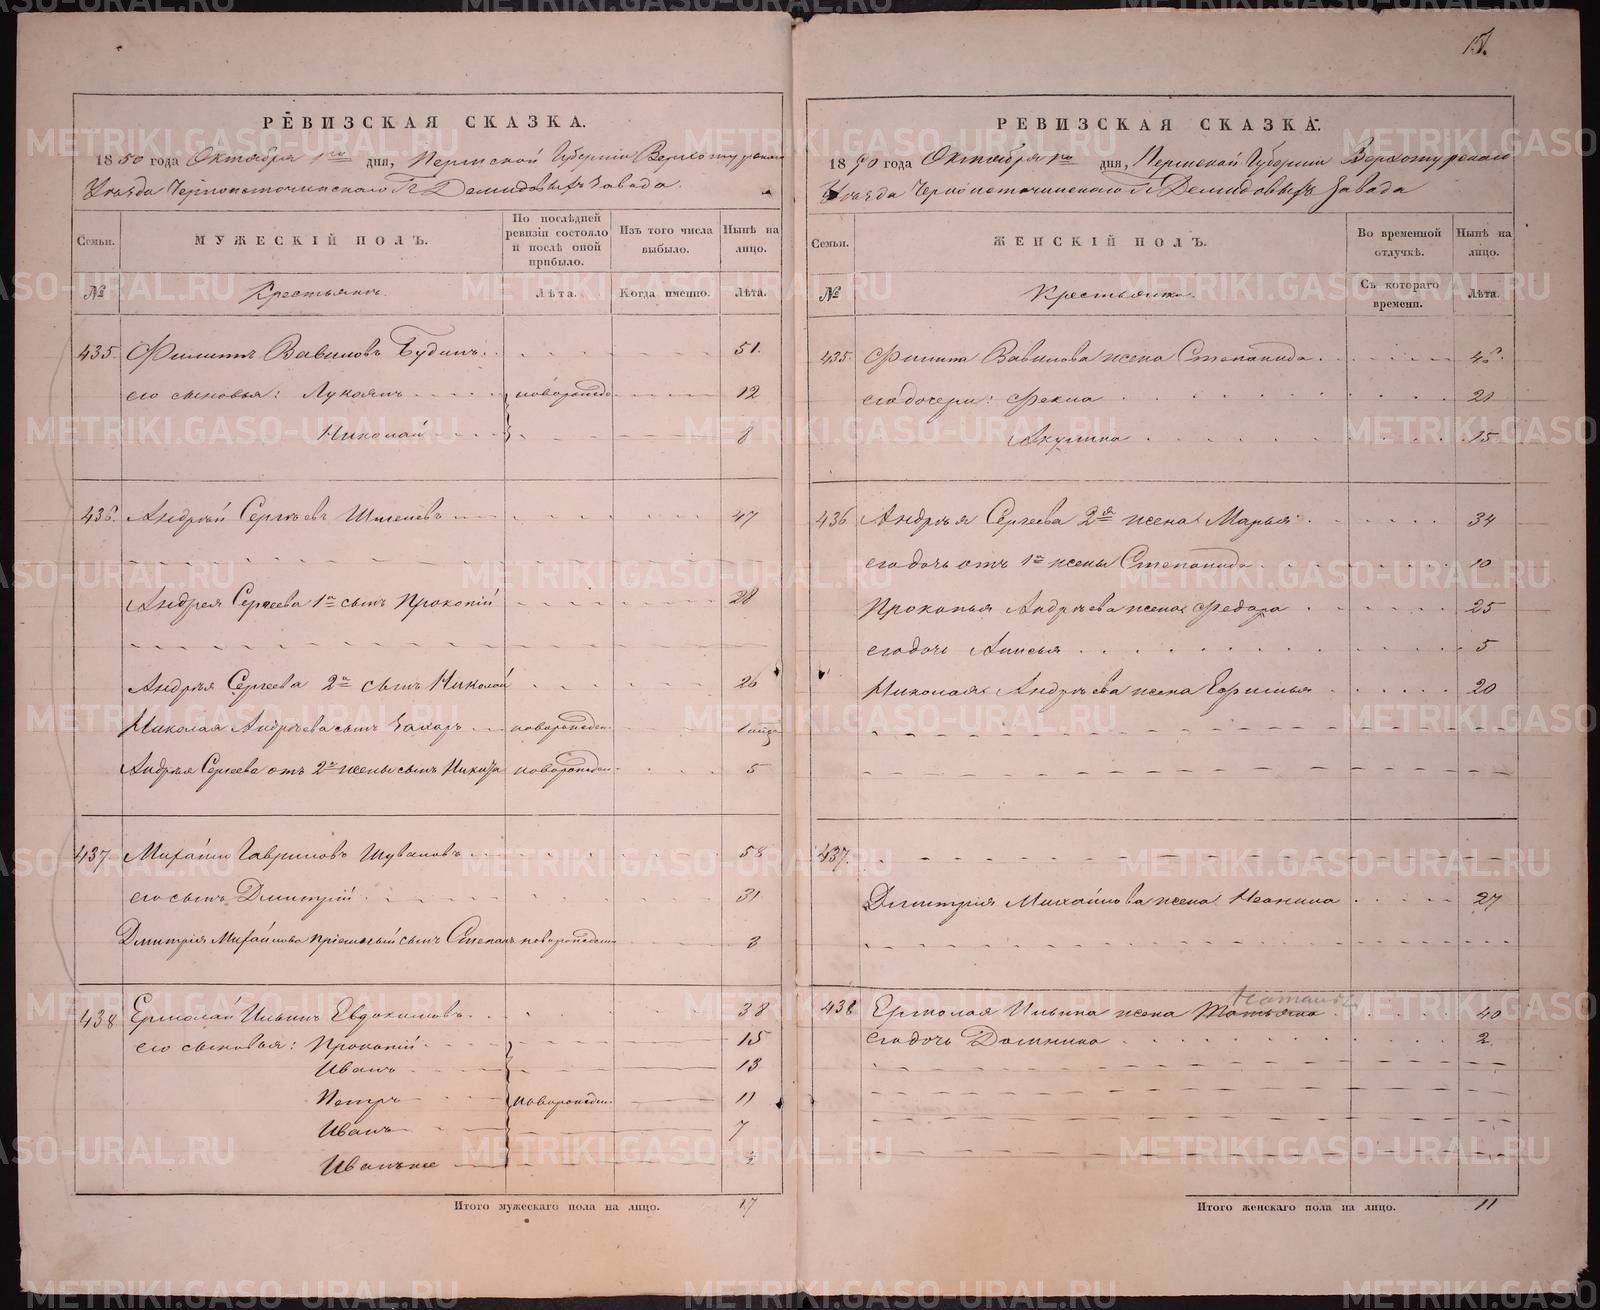 15.
РЕВИЗСКАЯ СКАЗКА.
1850 года Октября 1го дня, Пермской Губерніи Верхотурскаго
Уѣзда Черноисточинскаго Гг Демидовыхъ завода.
Семьи.
МУЖЕСКІЙ ПОЛЪ.
По послѣдней ревизіи состояло и послѣ оной прибыло.
Изъ того числа выбыло.
Нынѣ на лицо.
№
Крестьянъ.
Лѣта.
Когда именно.
Лѣта.
435. Филипъ Вавиловъ Будинъ. 51.
его сыновья: Лукоянъ новорожде 12
Николай 8
436. Андрей Сергѣевъ 47
Андрея Сергеева 1й сынъ Прокопій 28
Андрѣя Сергеева 2й сынъ Николай 26
Николая Андрѣева сынъ Захаръ новорожден
Андрѣя Сергеева отъ 2й жены сынъ Никита новорожден. 5
437. Михайло Гавриловъ Шуваловъ 58
его сынъ Дмитрій 31
Дмитрія Михайлова пріемный сынъ Степанъ новорожден 3
438 Ермолай Ильинъ Евдокимовъ. 38
его сыновья: Прокопій 15
Иванъ 13
Петръ новорожден. 11
Иванъ 7
Иванъже
Итого мужескаго пола на лицо. 17
РЕВИЗСКАЯ СКАЗКА.
1850 года Октября 1го дня, Пермской Губерніи Верхотурскаго
Уѣзда Черноисточинскаго Гг Демидовыхъ завода
Семьи.
ЖЕНСКІЙ ПОЛЪ.
Во временной отлучкѣ.
Нынѣ на лицо.
№
Крестьянки.
Съ котораго времени.
Лѣта.
435. Филипа Вавилова жена Степанида
его дочери: Фекла 21
Акулина 15
436. Андрѣя Сергеева 2я жена Марья 34
его дочь отъ 1й жены Степанида 10
Прокопья Андрѣева жена Федора 25
его дочь Анисья 5
Николая Андрѣева жена 20
437.
Дмитрія Михайлова жена Неонила 27
438 Ермолая Ильина жена Татьяна 40
его дочь Домника 2
Итого женскаго пола на лицо. 11
METRIKI.GASO-URAL.RU